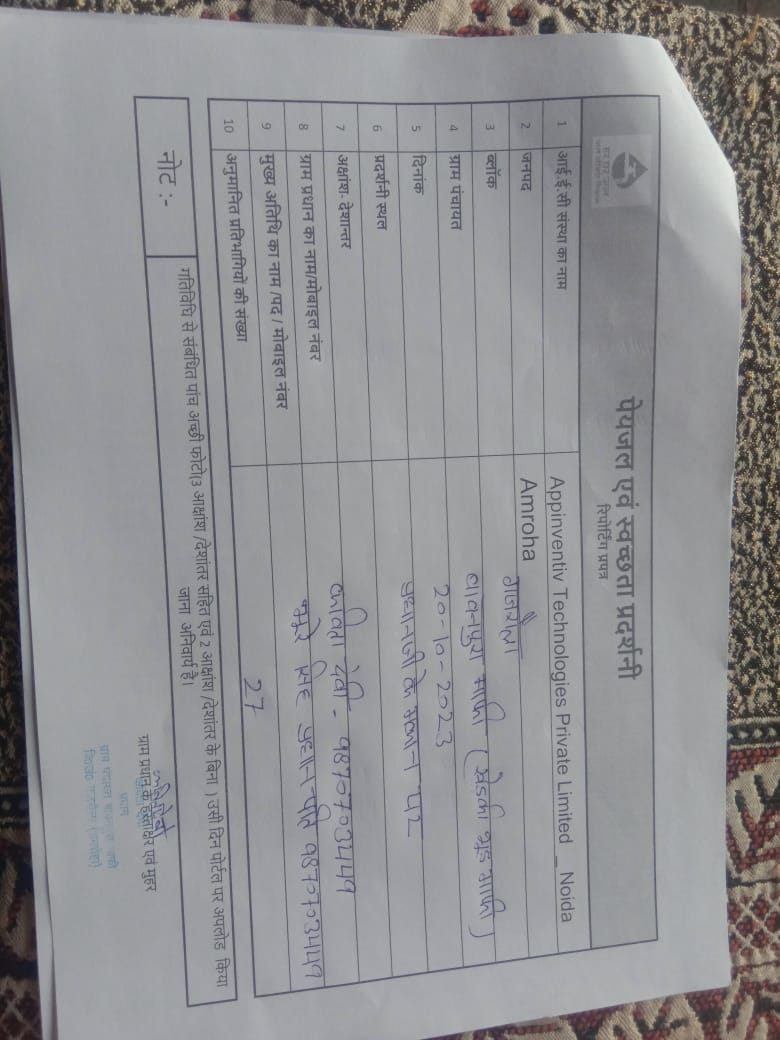 पेयजल एवं स्वच्छता प्रदर्शनी
रिपोर्टिंग प्रपत्र
1 आई.ई.सी संस्था का नाम Appinventiv Technologies Private Limited _ Noida
2 जनपद Amroha
3 ब्लॉक गजरौला
4 ग्राम पंचायत बावनपुरा माफी (खेडकी भूड माफी)
5 दिनांक 20-10-2023
6 प्रदर्शनी स्थल प्रधानजी के मकान पर
7 अक्षांश- देशान्तर
8 ग्राम प्रधान का नाम/मोबाइल नंबर कविता देवी - 9870703449
9 मुख्य अतिथि का नाम /पद / मोबाइल नंबर सिंह प्रधान पति 9870703449
10 अनुमानित प्रतिभागियों की संख्या 27
नोट :- गतिविधि से संबंधित पांच अच्छी फोटो(3 आक्षांश /देशांतर सहित एवं 2 आक्षांश /देशांतर के बिना ) उसी दिन पोर्टल पर अपलोड किया
जाना अनिवार्य है।
ग्राम प्रधान के हस्ताक्षर एवं मुहर